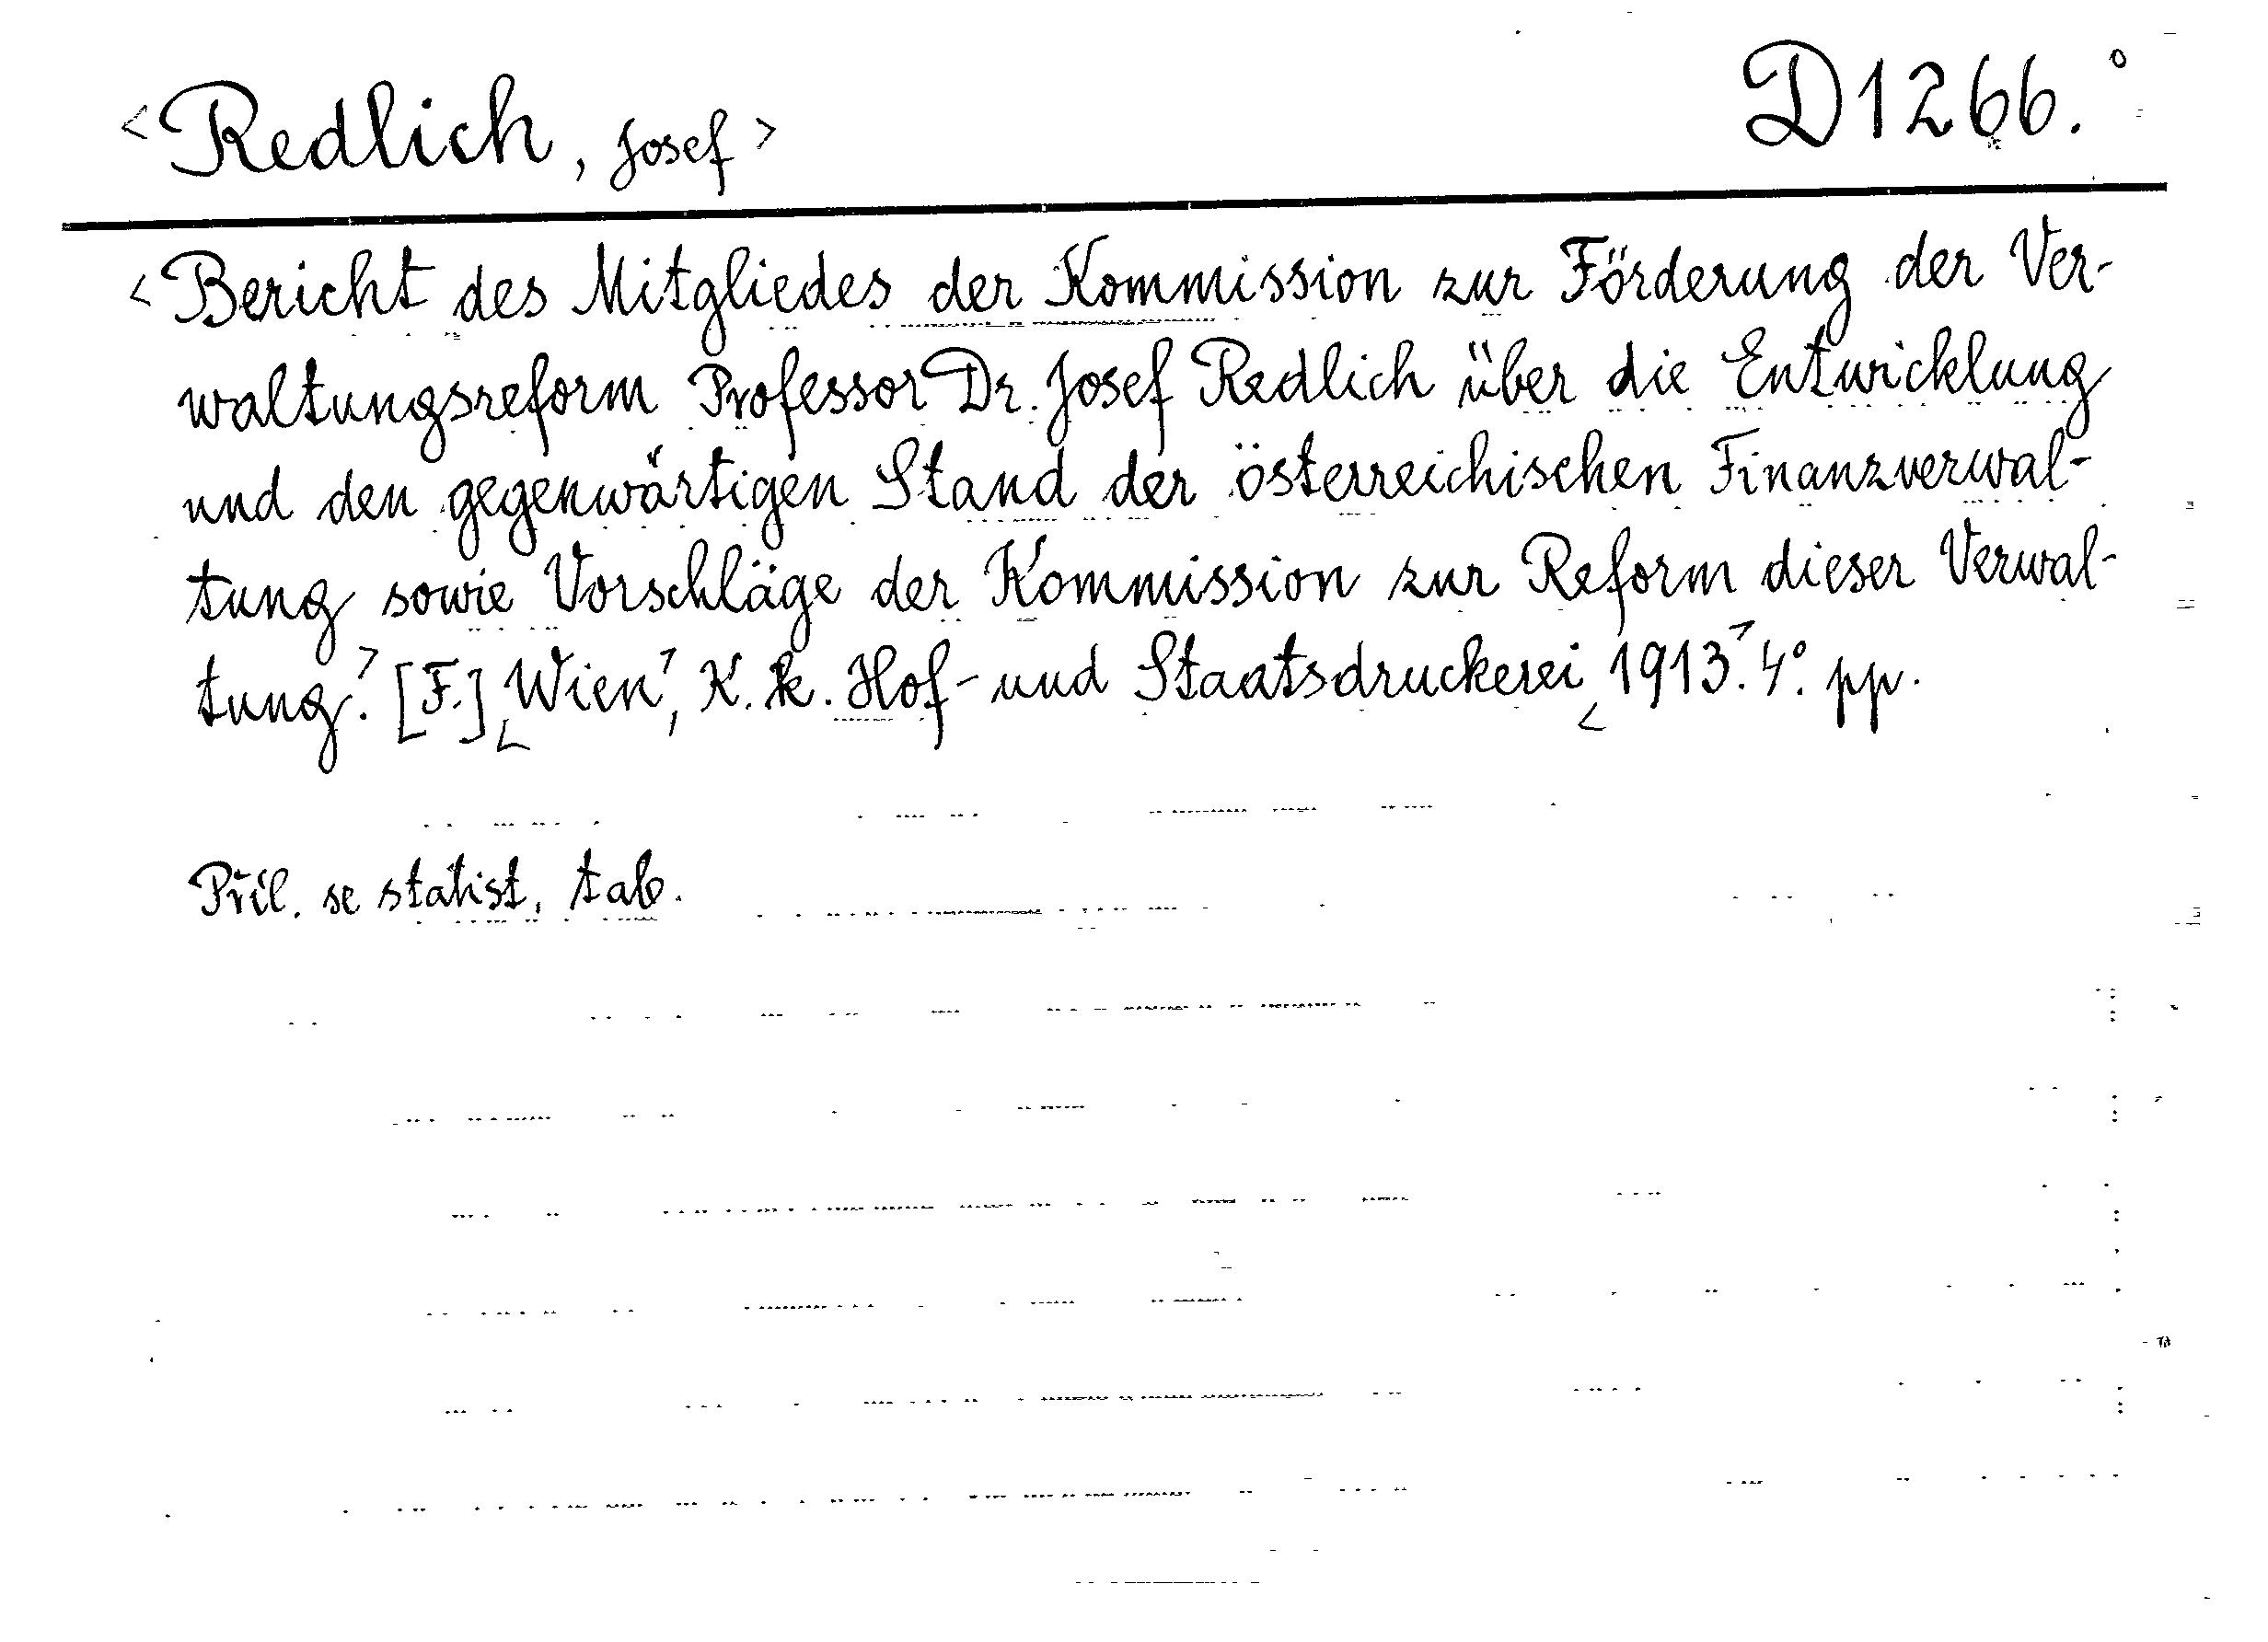 <Redlich, Josef>
D1266.°
<Bericht des Mitgliedes der Kommission zur Förderung der Ver-
waltungsreform Professor Dr. Josef Redlich über die Entwicklung
und den gegenwärtigen Stand der österreichischen Finanzverwal-
tung sowie Vorschläge der Kommission zur Reform dieser Verwal-
tung>. [F.] <Wien>, K. k. Hof- und Staatsdruckerei <1913>. 4°. pp.
Příl. se statist. tab.